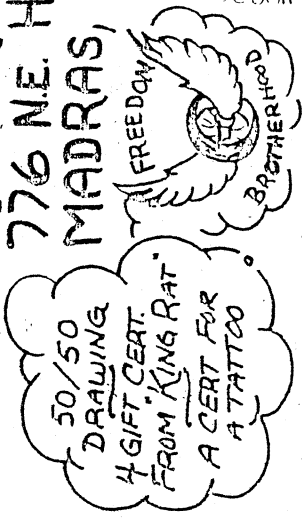 776 N.E. H
MADRAS,
FREEDOM
BROTHERHOOD
50/50
DRAWING
4 GIFT CERT.
FROM "KING RAT"
A CERT FOR
A TATTOO